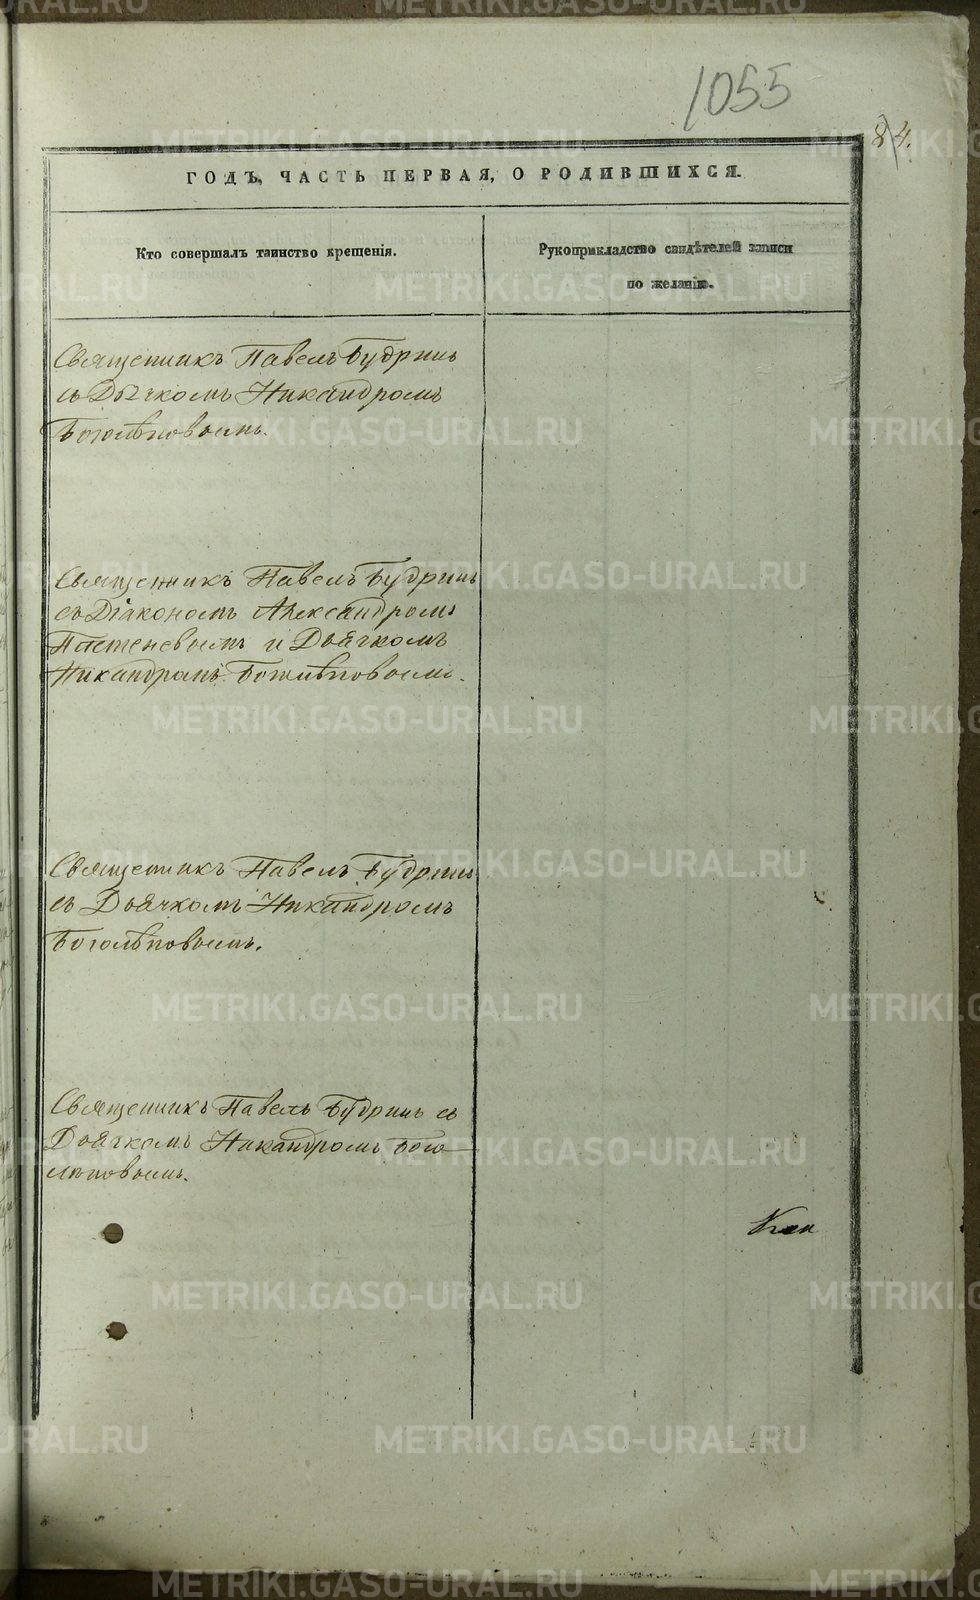 1055
84.
ГОДЪ, ЧАСТЬ ПЕРВАЯ, О РОДИВШИХСЯ.
Кто совершалъ таинство крещенія.
Рукоприкладство свидѣтелей записи
по желанію.
Священникъ Павелъ Будринъ
съ Дьячкомъ Никандромъ
Боголѣповымъ.
Священникъ Павелъ Будринъ
съ Діакономъ Александромъ
и Дьячкомъ
Никандромъ Боголѣповымъ.
Священникъ Павелъ Будринъ
съ Дьячкомъ Никандромъ
Боголѣповымъ.
Священникъ Павелъ Будринъ съ
Дьячкомъ Никандромъ Бого-
лѣповымъ.
METRIKI.GASO-URAL.RU